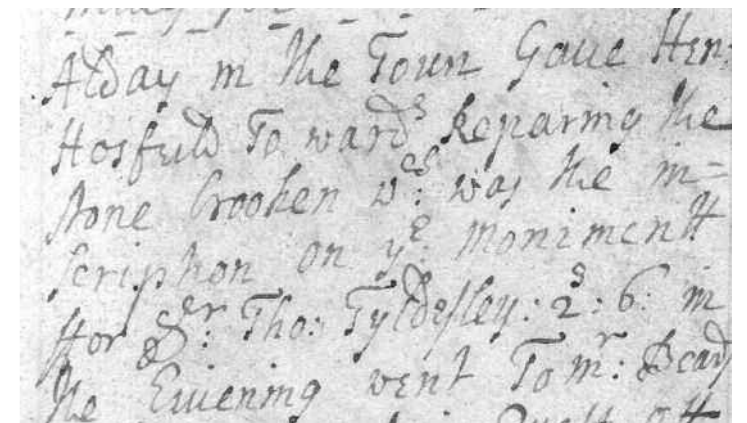 Alday in the Town Gave Hen:
Hosfeild To wards Reparing the
stone brooken wch: was the in=
scription on ye: moniment
ffor Sr: Tho: Tyldesley: 2s: 6: in
the Euiening went To mr: